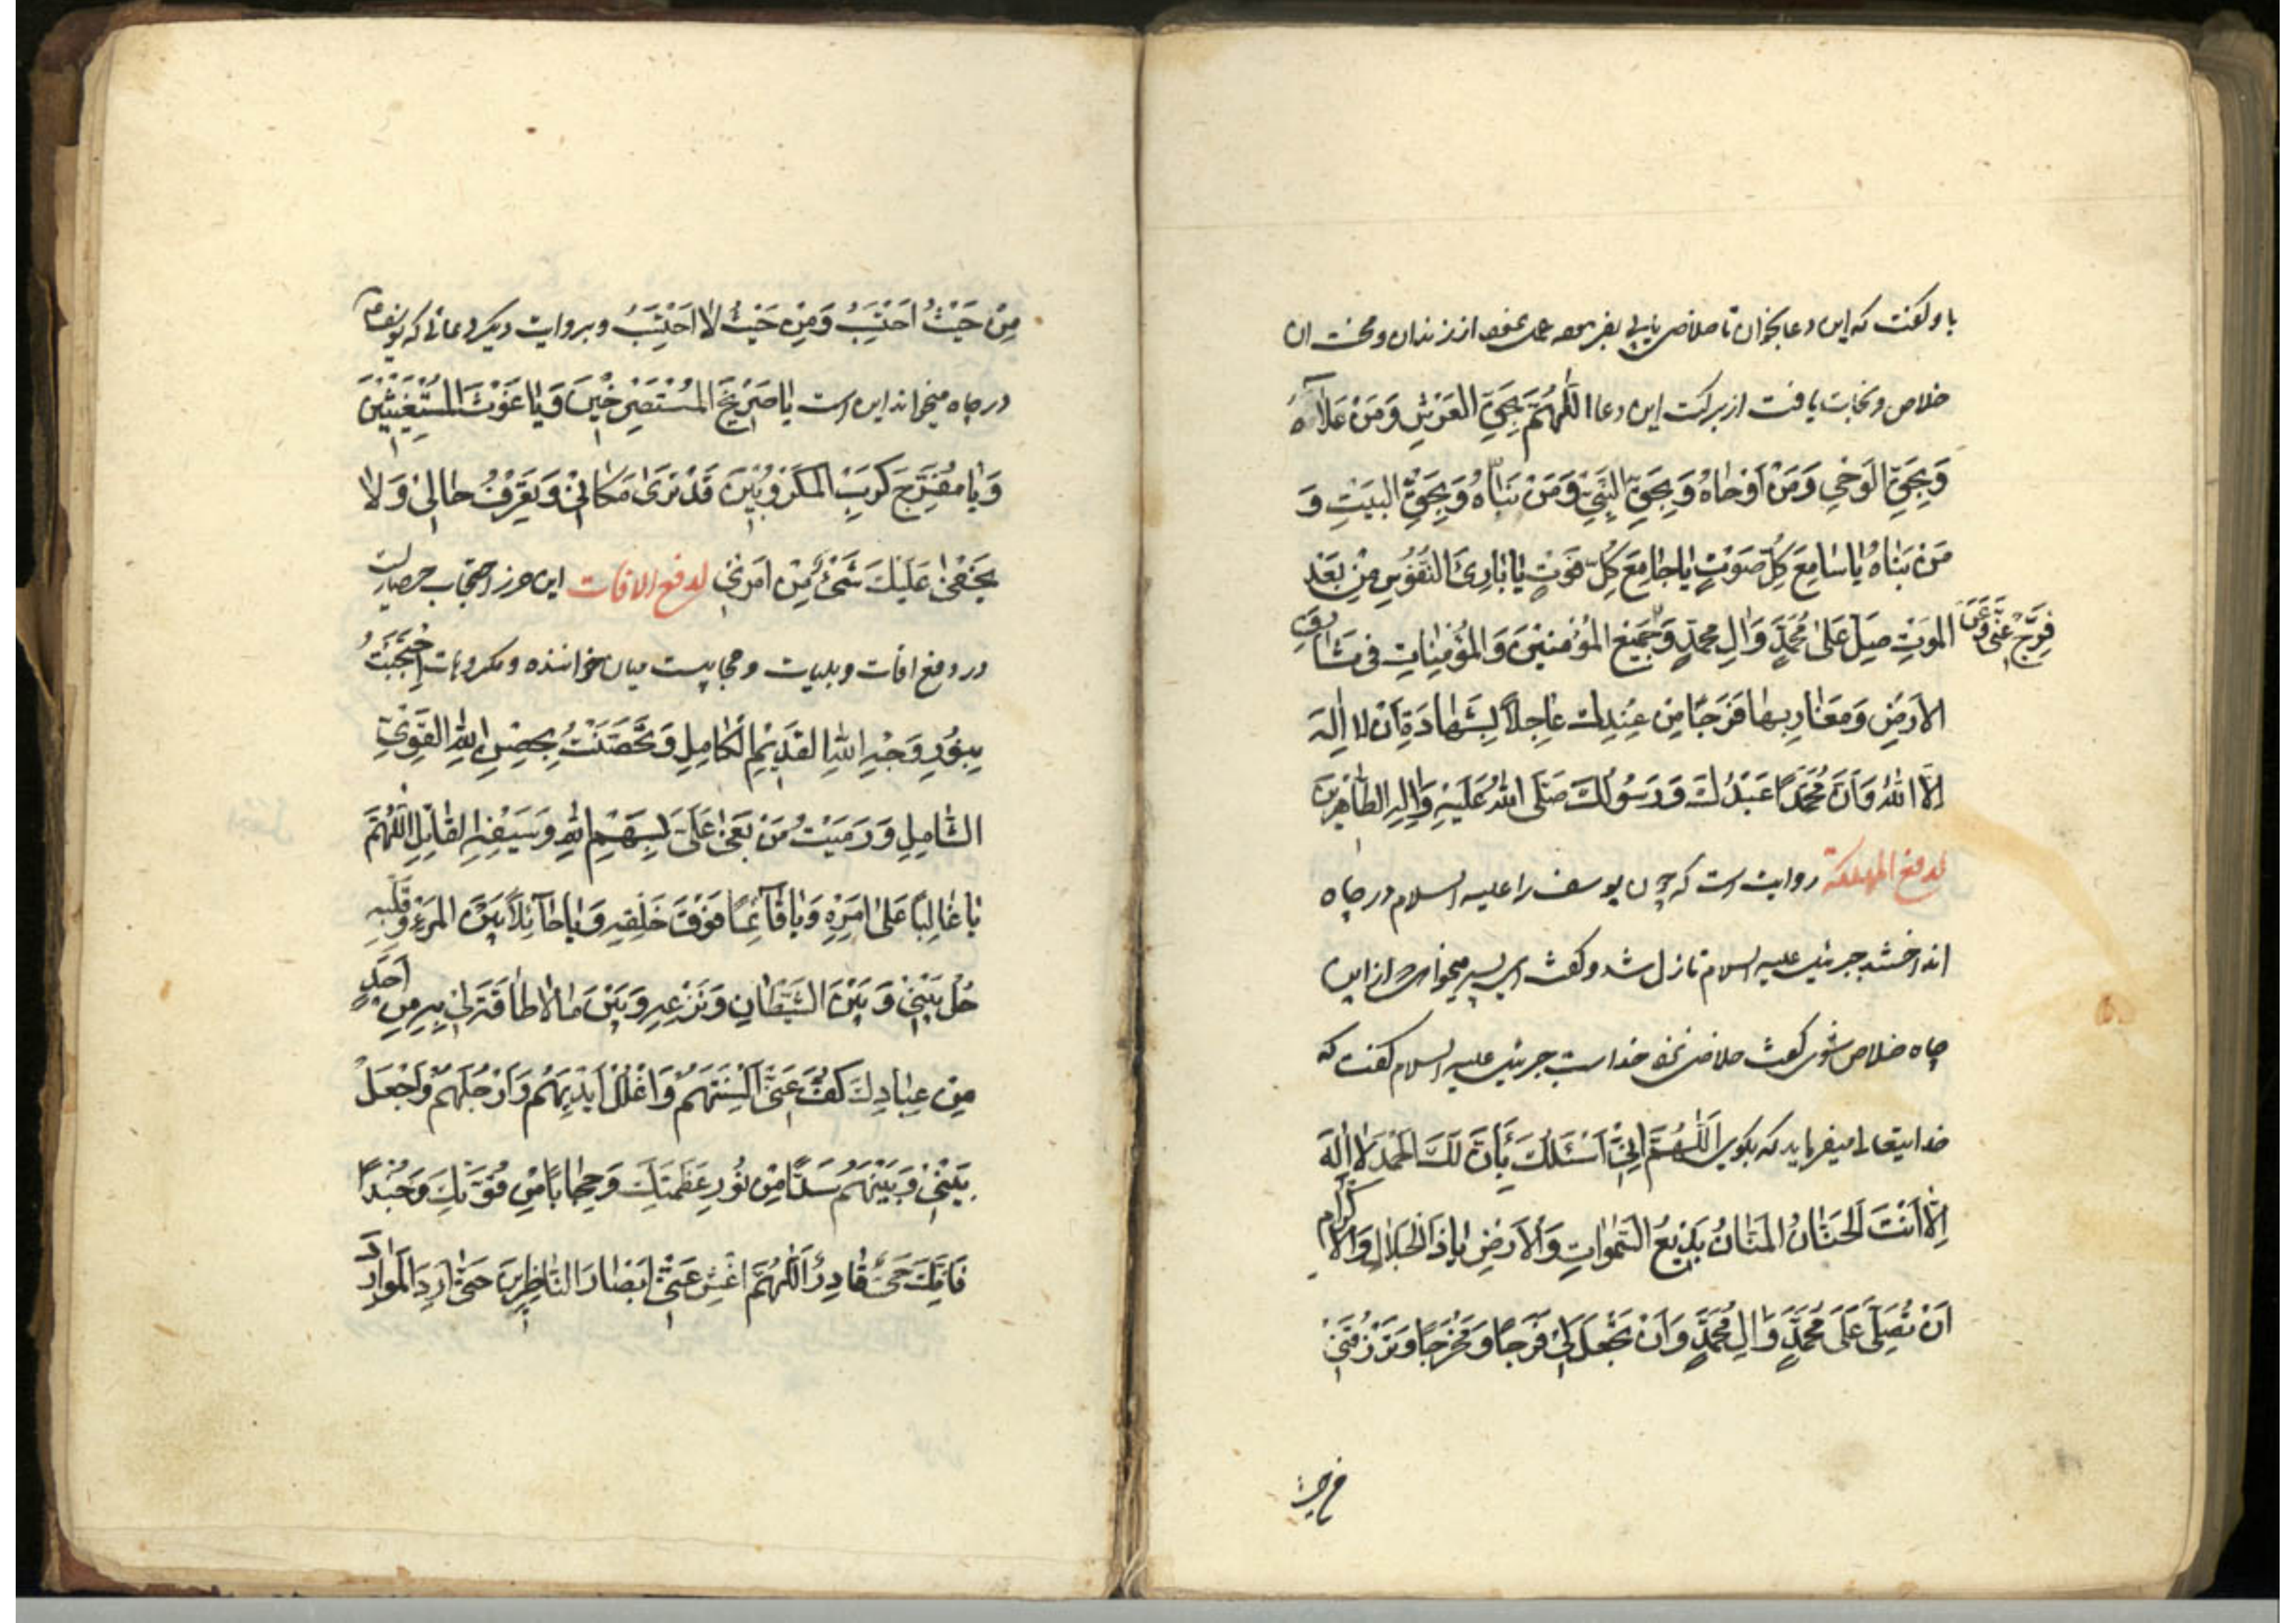 باو گفت که این دعا بخوان تا خلاصی یابی از زندان و محنت ان
خلاص و نجات یافت از برکت این دعا اَللّهُمَّ بِحَقِّ العَرْشِ وَمَنْ عَلاهُ
وَبِحَقِّ الوَحْیِ وَمَنْ اَوْحاهُ وَبِحَقِّ النَّبِیِّ وَمَنْ نَبَّاهُ وَبِحَقِّ البَیْتِ وَ
مَنْ بَناهُ یا سامِعَ کُلِّ صَوْتٍ یا جامِعَ کُلِّ فَوْتٍ یا بارِئَ النُّفُوسِ مِنْ بَعْدِ
المَوْتِ صَلِّ عَلی مُحَمَّدٍ وَالِ مُحَمَّدٍ وَجَمِیعِ المُؤْمِنینَ وَالمُؤْمِناتِ فی مَشارِقِ
فَرِّجْ عَنّی وَعَنْ
الاَرْضِ وَمَغارِبِها فَرَجًا مِنْ عِنْدِكَ عاجِلاً بِشَهادَةِ اَنْ لا اِلهَ
اِلاَّ اللهُ وَاَنَّ مُحَمَّدًا عَبْدُكَ وَرَسُولُكَ صَلَّی اللهُ عَلَیْهِ وَالِهِ الطّاهِرینَ
لدفع المهلکة روایت است که چون یوسف را علیه السلام در چاه
انداختند جبرئیل علیه السلام نازل شد و گفت ای پسر میخواهی از این
چاه خلاص شوی گفت خلاصی نزد خداست جبرئیل علیه السلام گفت که
خدایتعالی میفرماید که بگوی اَللّهُمَّ اِنّی اَسْئَلُكَ بِاَنَّ لَكَ الحَمْدَ لا اِلهَ
اِلاّ اَنْتَ الحَنّانُ المَنّانُ بَدیعُ السَّمواتِ وَالاَرْضِ یا ذَا الجَلالِ وَالاکرام
اَنْ تُصَلِّیَ عَلی مُحَمَّدٍ وَالِ مُحَمَّدٍ وَاَنْ تَجْعَلَ لی فَرَجًا وَمَخْرَجًا وَتَرْزُقَنی
من حیث
مِنْ حَیْثُ اَحْتَسِبُ وَمِنْ حَیْثُ لا اَحْتَسِبُ و بروایت دیگر دعائی که یوسف
در چاه میخواند این است یا صَریخَ المُسْتَصْرِخینَ وَیا غَوْثَ المُسْتَغیثینَ
وَیا مُفَرِّجَ کَرْبِ المَکْرُوبینَ قَدْ تَری مَکانی وَتَعْرِفُ حالی وَلا
یَخْفی عَلَیْكَ شَیْءٌ مِنْ اَمْری لدفع الافات این حرز احتجاب
در دفع افات و بلیات و حجابیست میان خواننده و مکروهات اِحْتَجَبْتُ
بِنُورِ وَجْهِ اللهِ القَدیمِ الکامِلِ وَتَحَصَّنْتُ بِحِصْنِ اللهِ القَوِیِّ
الشّامِلِ وَرَمَیْتُ مَنْ بَغی عَلَیَّ بِسَهْمِ اللهِ وَسَیْفِهِ القاتِلِ اَللّهُمَّ
یا غالِبًا عَلی اَمْرِهِ وَیا قائِمًا فَوْقَ خَلْقِهِ وَیا حائِلاً بَیْنَ المَرْءِ وَقَلْبِهِ
حُلْ بَیْنی وَبَیْنَ الشَّیْطانِ وَنَزْغِهِ وَبَیْنَ ما لا طاقَةَ لی بِهِ مِنْ اَحَدٍ
مِنْ عِبادِكَ کُفَّ عَنّی اَلْسِنَتَهُمْ وَاغْلُلْ اَیْدِیَهُمْ وَاَرْجُلَهُمْ وَاجْعَلْ
بَیْنی وَبَیْنَهُمْ سَدًّا مِنْ نُورِ عَظَمَتِكَ وَحِجابًا مِنْ قُوَّتِكَ وَجُنْدًا
فَاِنَّكَ حَیٌّ قادِرٌ اَللّهُمَّ اغْشِ عَنّی اَبْصارَ النّاظِرینَ حَتّی اَرِدَ المَوارِدَ